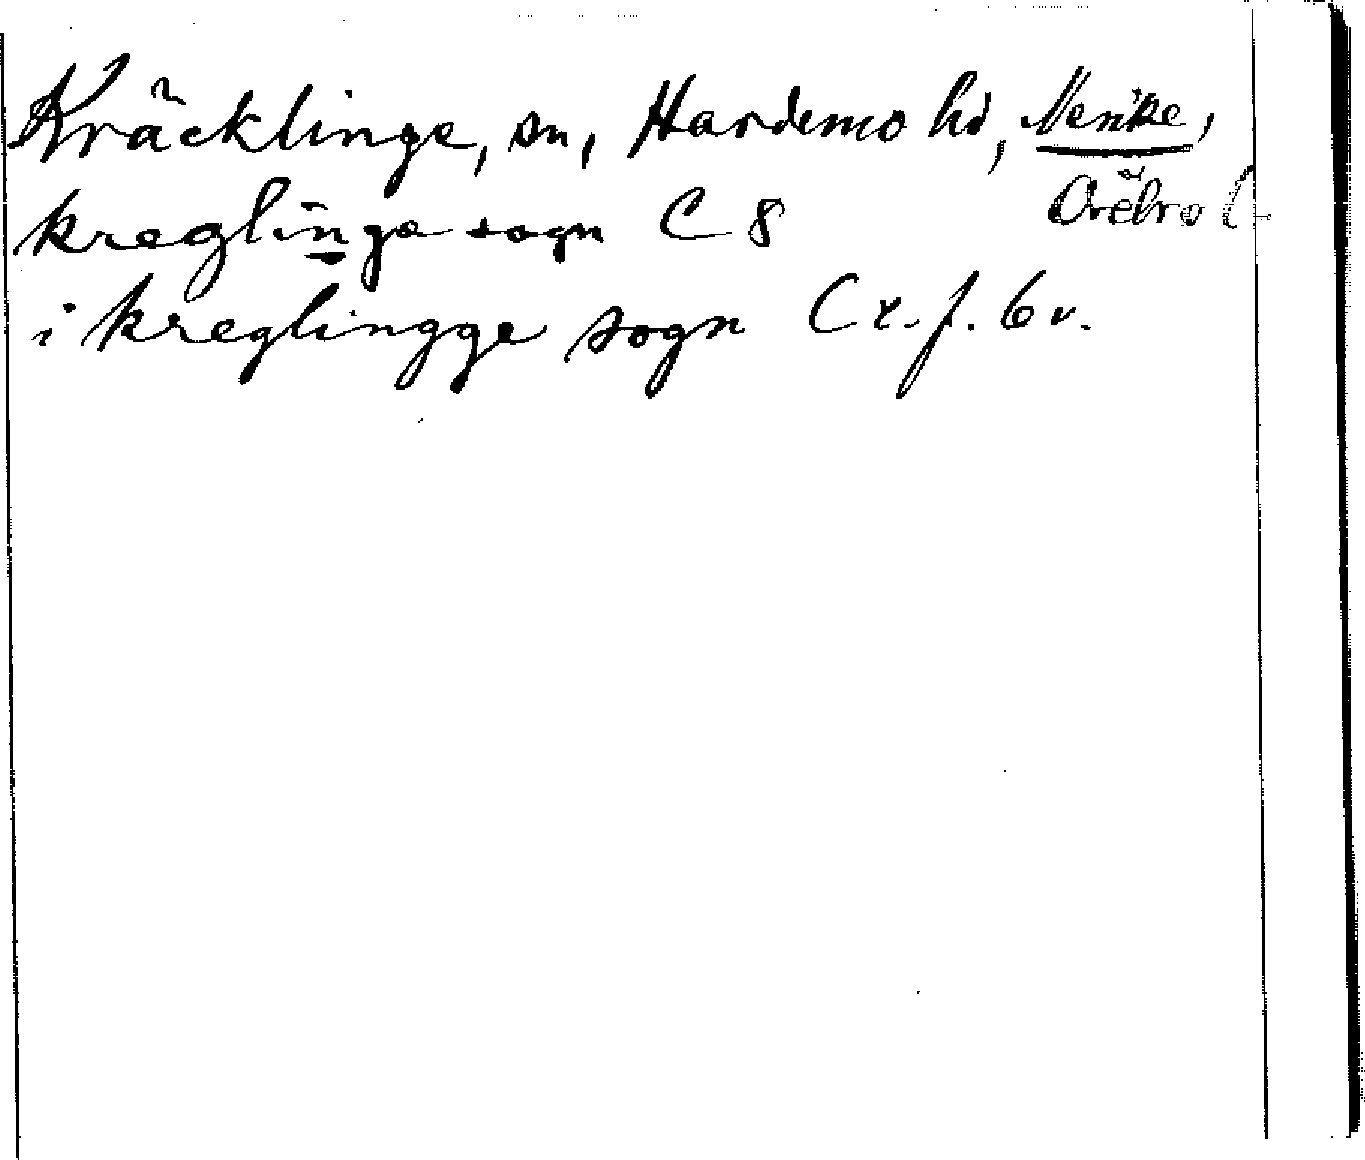 Kräcklinge, sn, Hardemo hd, Nerike,
Örebro l
kreglinge sogn C 8
i kreglingge sogn C x. f. 6 v.